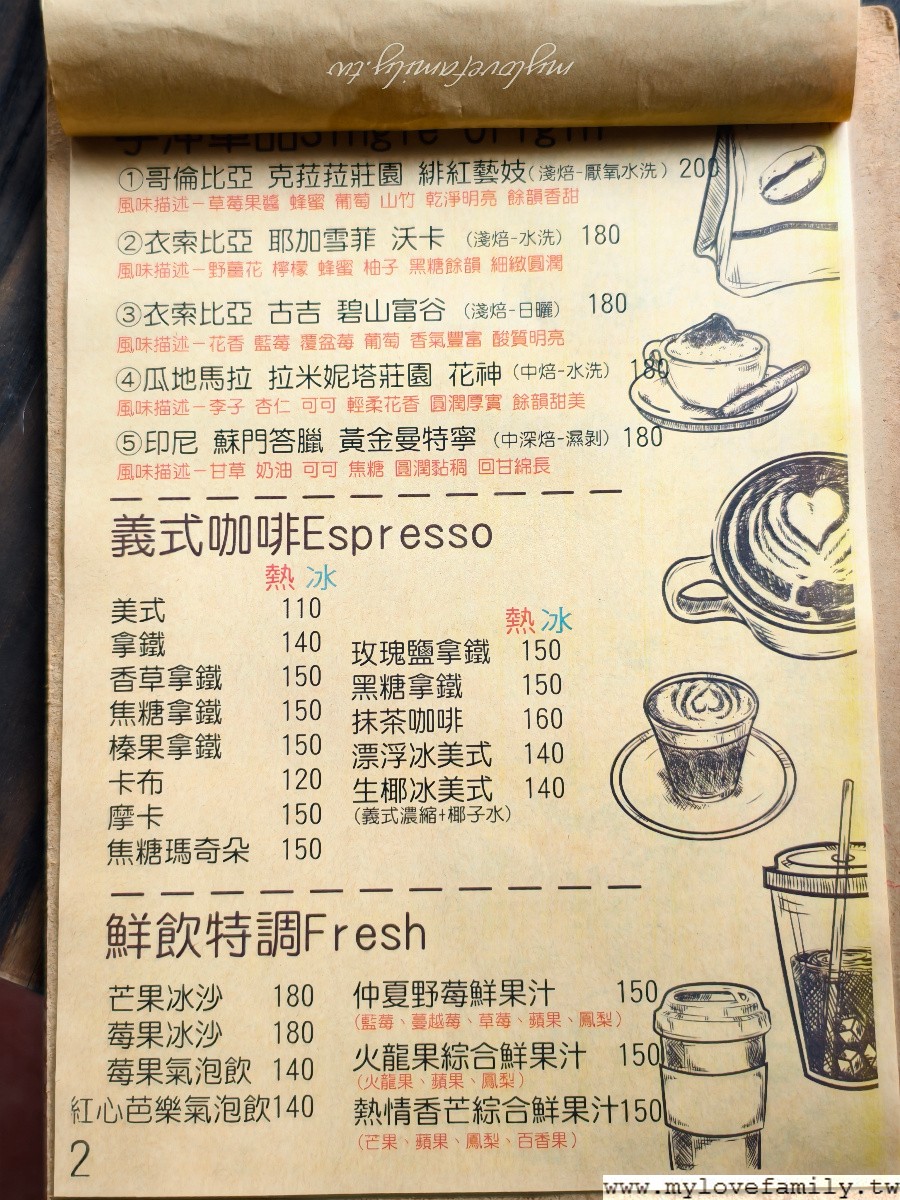 mylovefamily.tw
手沖單品Single Origin
①哥倫比亞 克菈菈莊園 緋紅藝妓(淺焙-厭氧水洗) 200
風味描述-草莓果醬 蜂蜜 葡萄 山竹 乾淨明亮 餘韻香甜
②衣索比亞 耶加雪菲 沃卡 (淺焙-水洗) 180
風味描述-野薑花 檸檬 蜂蜜 柚子 黑糖餘韻 細緻圓潤
③衣索比亞 古吉 碧山富谷 (淺焙-日曬) 180
風味描述-花香 藍莓 覆盆莓 葡萄 香氣豐富 酸質明亮
④瓜地馬拉 拉米妮塔莊園 花神 (中焙-水洗) 180
風味描述-李子 杏仁 可可 輕柔花香 圓潤厚實 餘韻甜美
⑤印尼 蘇門答臘 黃金曼特寧 (中深焙-濕剝) 180
風味描述-甘草 奶油 可可 焦糖 圓潤黏稠 回甘綿長
義式咖啡Espresso
熱 冰
美式 110
拿鐵 140
香草拿鐵 150
焦糖拿鐵 150
榛果拿鐵 150
卡布 120
摩卡 150
焦糖瑪奇朵 150
熱 冰
玫瑰鹽拿鐵 150
黑糖拿鐵 150
抹茶咖啡 160
漂浮冰美式 140
生椰冰美式 140
(義式濃縮+椰子水)
鮮飲特調Fresh
芒果冰沙 180
莓果冰沙 180
莓果氣泡飲 140
紅心芭樂氣泡飲140
仲夏野莓鮮果汁 150
(藍莓、蔓越莓、草莓、蘋果、鳳梨)
火龍果綜合鮮果汁 150
(火龍果、蘋果、鳳梨)
熱情香芒綜合鮮果汁150
(芒果、蘋果、鳳梨、百香果)
2
www.mylovefamily.tw